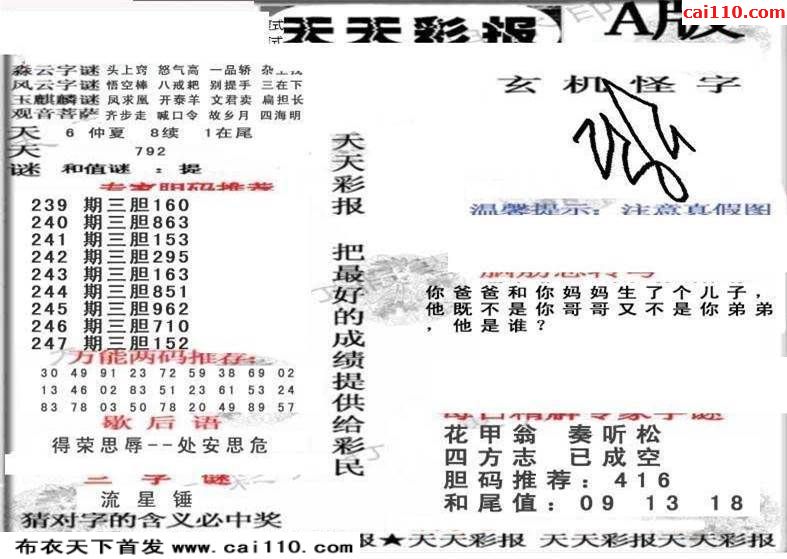 cai110.com
天天彩报 A版
森云字谜 头上窍 怒气高 一品轿
风云字谜 悟空棒 八戒耙 别提手 三在下
玉麒麟谜 凤求凰 开泰羊 文君卖 扁担长
观音菩萨 齐步走 喊口令 故乡月 四海明
天 6 仲夏 8续 1在尾
天 792
谜 和值谜 : 提
专家胆码推荐
239 期三胆160
240 期三胆863
241 期三胆153
242 期三胆295
243 期三胆163
244 期三胆851
245 期三胆962
246 期三胆710
247 期三胆152
万能两码推荐:
30 49 91 23 72 59 38 69 02
13 46 02 83 51 23 61 53 24
83 78 03 50 78 20 49 89 57
歇后语
得荣思辱--处安思危
三字谜
流星锤
猜对字的含义必中奖
布衣天下首发 www.cai110.com
天天彩报 把最好的成绩提供给彩民
玄机怪字
温馨提示: 注意真假图
脑筋急转弯
你爸爸和你妈妈生了个儿子,
他既不是你哥哥又不是你弟弟
,他是谁?
每日精解专家字谜
花甲翁 奏听松
四方志 已成空
胆码推荐: 416
和尾值: 09 13 18
报★天天彩报 天天彩报 天天彩报